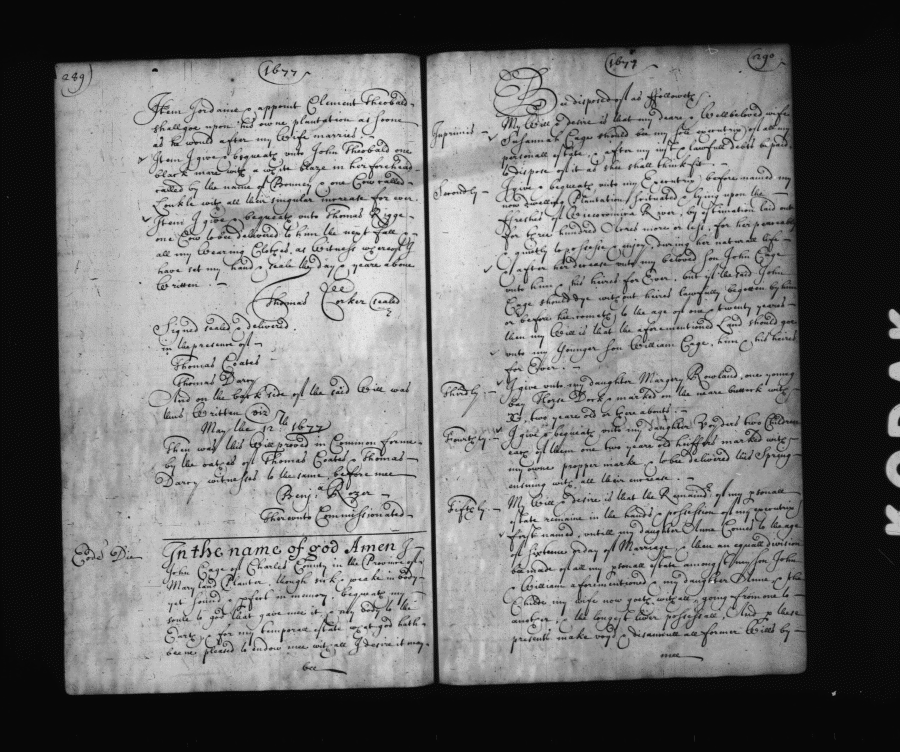 289
1677
Item I ordaine & appoint Clement Theobald
shall goe upon his owne plantation as soone
as he would after my Wife marries.
Item I give & bequeath unto John Theobald one
black mare with a white blaze in her forehead
called by the name of & one Cow called
with all their singular increase for ever.
Item I give & bequeath unto Thomas
one Cow to bee delivered to him the next fall &
all my Wearing Clothes, as Witness whereof I
have set my hand & seale the day & yeare above
Written.
Thomas Lee Corker sealed
Signed sealed & delivered
in the presence of
Thomas Coates
Thomas Darcy
And on the back side of the said Will was
thus Written (viz)
May the 12th 1677
Then was this Will proved in Common forme
by the oathes of Thomas Coates & Thomas
Darcy witnesses to the same before mee
Benj: Rozer
thereunto Commissionated
Eode' Die
In the name of god Amen I
John Cage of Charles County in the Province of
Mary land Planter, though sick & weake in body
yet sound & pfect in memory, bequeath my
soule to god that gave mee it & my body to the
Earth, & for my temporall estate what god hath
beene pleased to endow mee with all I desire it may
bee
1677
290
Be disposed of as Followeth
Imprimis
My Will & desire is that my deare & Wellbeloved wife
Susannah Cage should bee my sole executrix of all my
personall estate, & after my just & lawfull debts be paid
to dispose of it as shee shall think fit.
Secondly
I give & bequeath unto my Executrix before named my
now dwelling Plantation scituated lying upon the
ffreshes of Wiccocomico River, by estimation laid out
for three hundred Acres more or less, for her peaceably
& quietly to possesse & enjoy during her naturall life
& after her decease unto my beloved son John Cage
unto him & his heires for Ever, but if the said John
Cage should dye without heires lawfully begotten by him
or before hee cometh to the age of one & twenty yeares
then my Will is that the aforementioned Land should goe
unto my Younger son William Cage, him & his heires
for Ever.
Thirdly
I give unto my daughter Margery Rowland, one young
bay Horse & marked on the neare buttock with
two yeares old & there abouts.
Fourthly
I give & bequeath unto my daughter two Children
each of them one two yeare old heiffer marked with
my owne propper marke & to bee delivered this Spring
ensuing with all their increase.
Fiftly
My Will & desire is that the Remaind' of my psonall
estate remaine in the hands & possession of my executrix
first named, untill my daughter Anne Comes to the age
of Sixteene or day of Marriage & then an equall division
bee made of all my psonall estate among my son John
& William aforementioned & my daughter Anne & the
Childe my wife now goeth with all, going from one to
another, & the longest liver possess all, And p these
presents make voyd & disannull all former Wills by
mee
KODAK